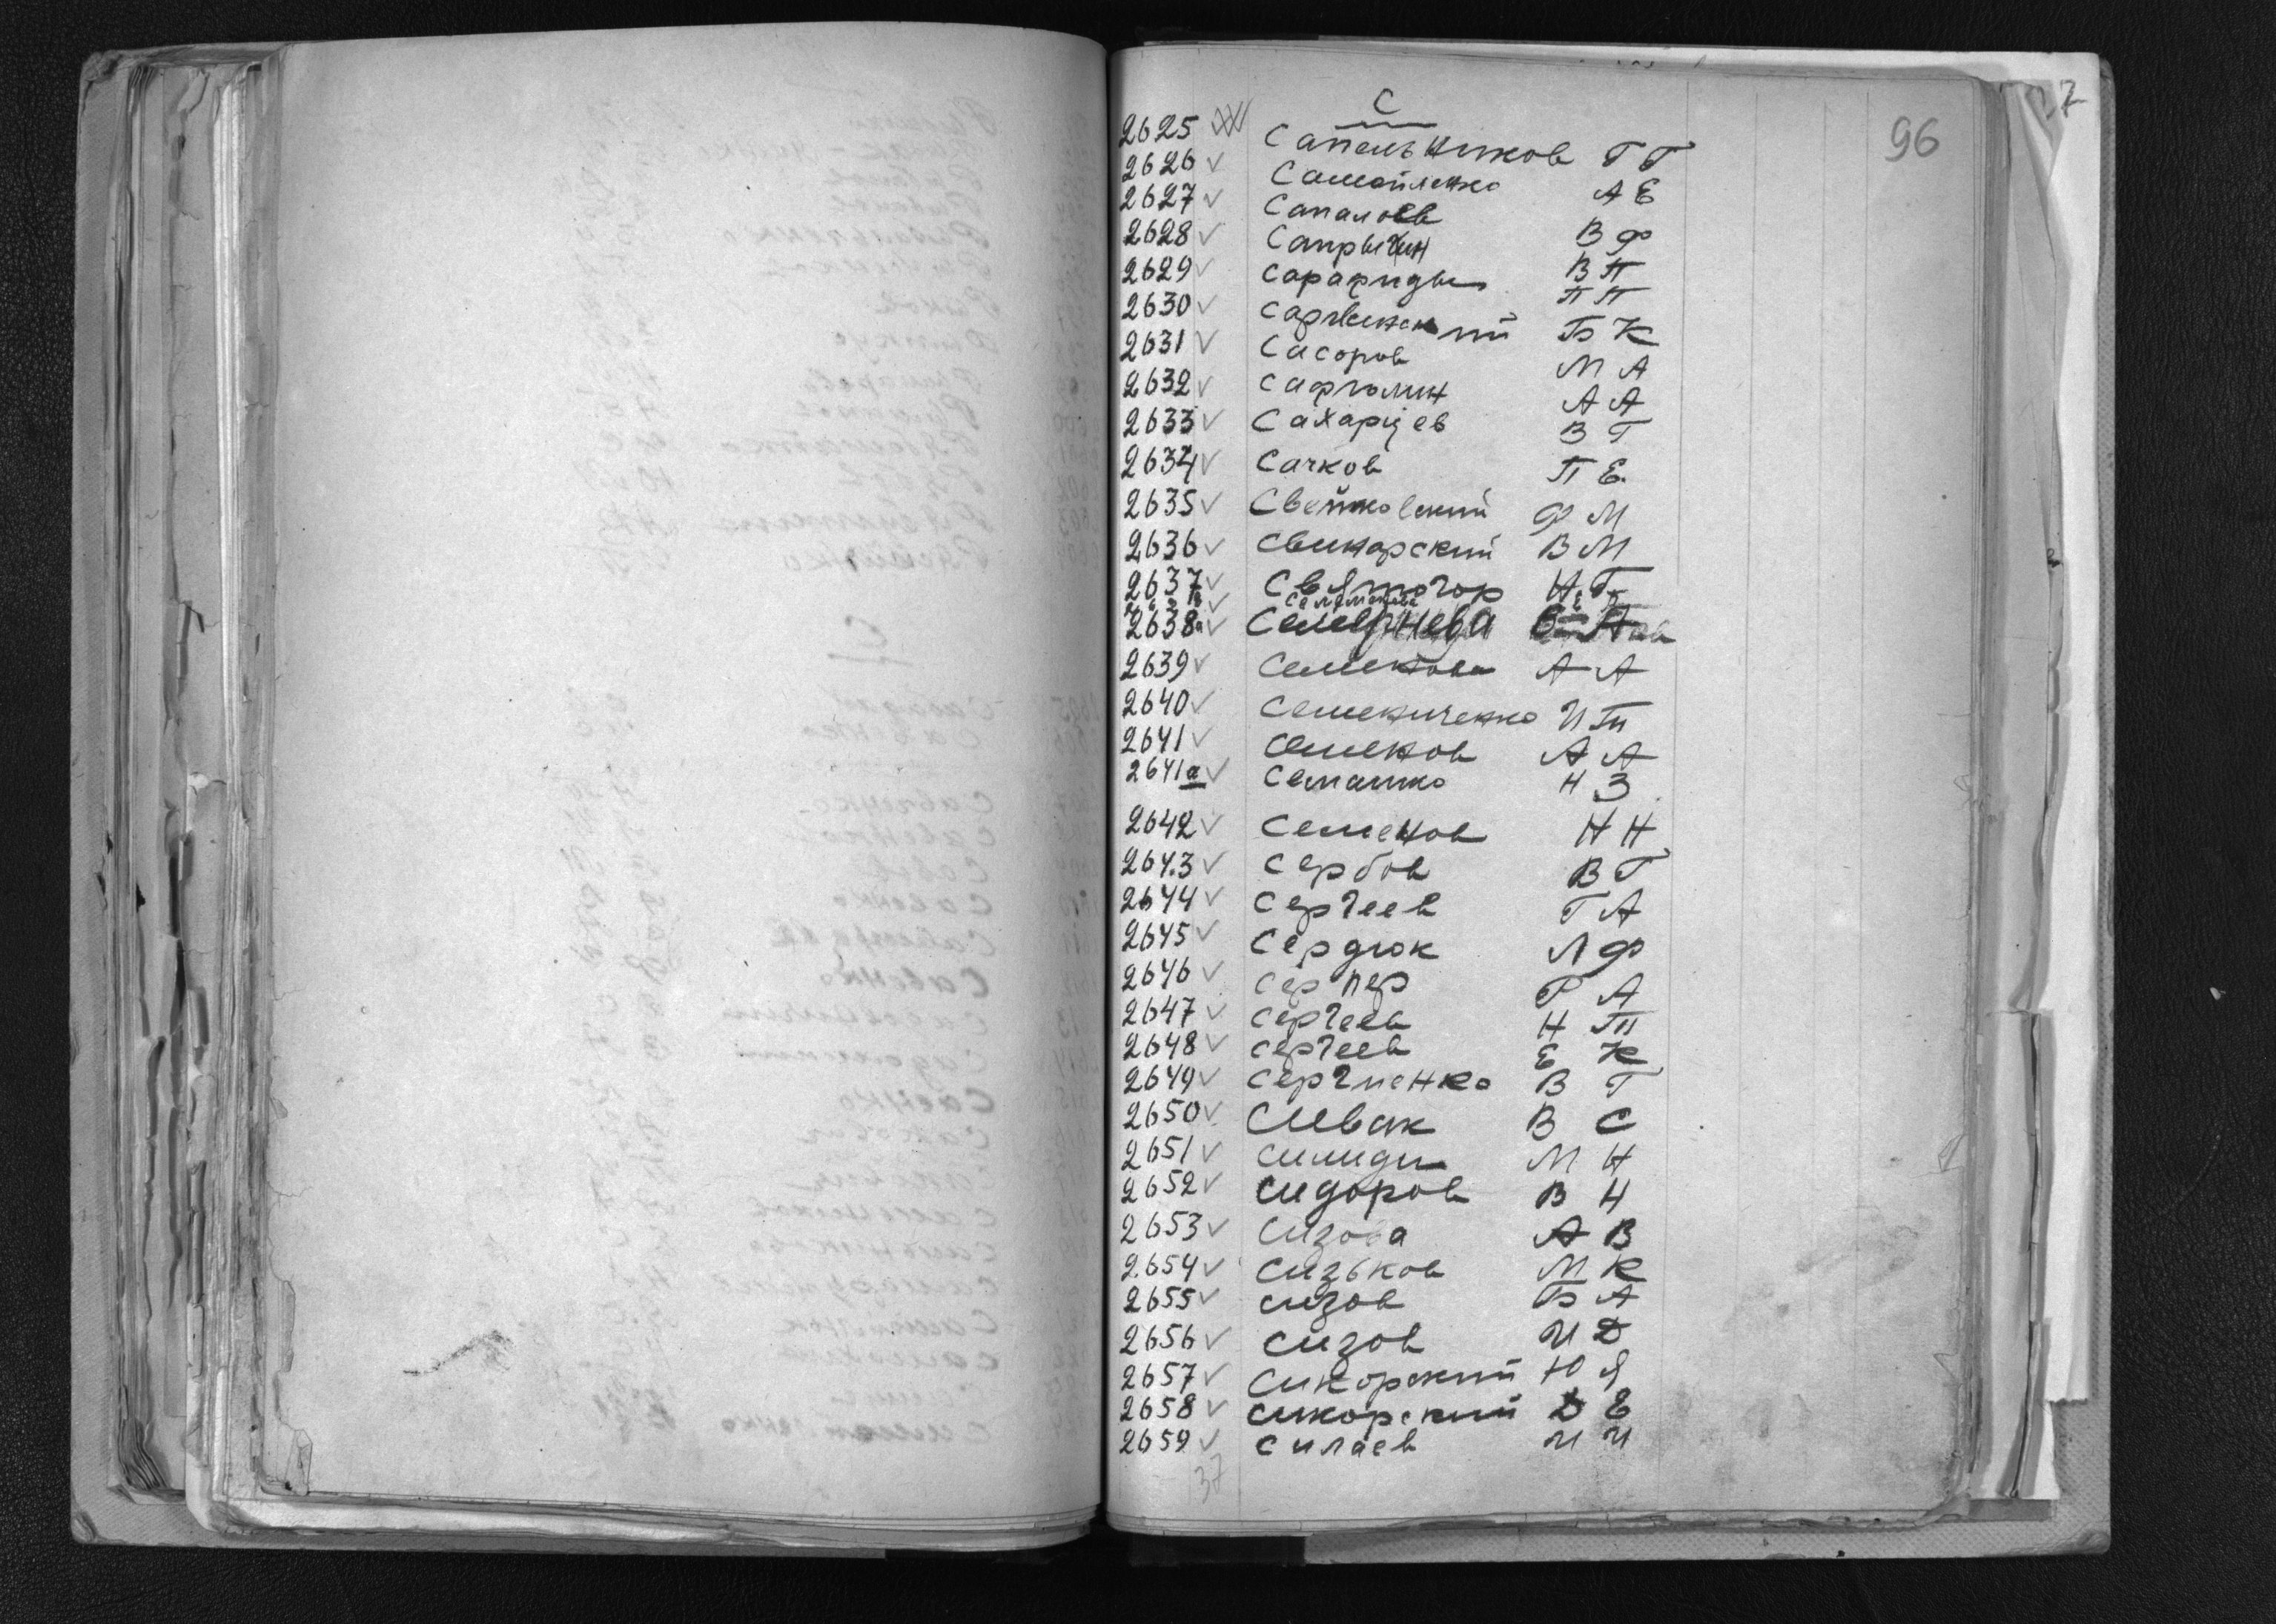 С
96
2625 Сапельников Г Г
2626 Самойленко А Е
2627 Сапалоев В Ф
2628 Сапрыгин В П
2629 Сарафиди П П
2630 Б К
2631 Сасоров М А
2632 А А
2633 Сахарцев В Г
2634 Сачков П Е.
2635 Свейковский Ф М
2636 Свинарский В М
2637 Святогор Н. Г.
2638а
2639 Семенова А А
2640 Семениченко И П
2641 Семенов А А
2641а Семашко Н З
2642 Семенов Н Н
2643 Сербов В Г
2644 Сергеев Г А
2645 Сердюк Л Ф
2646 Серпер Р А
2647 Сергеев Н П
2648 Сергеев Е К
2649 Сергиенко В Г
2650 Сивак В С
2651 М Н
2652 Сидоров В Н
2653 Сизова А В
2654 Сизьков М К
2655 Сизов Б А
2656 Сизов И Д
2657 Сикорский Ю Я
2658 Сикорский Д Е
2659 Силаев И И
37